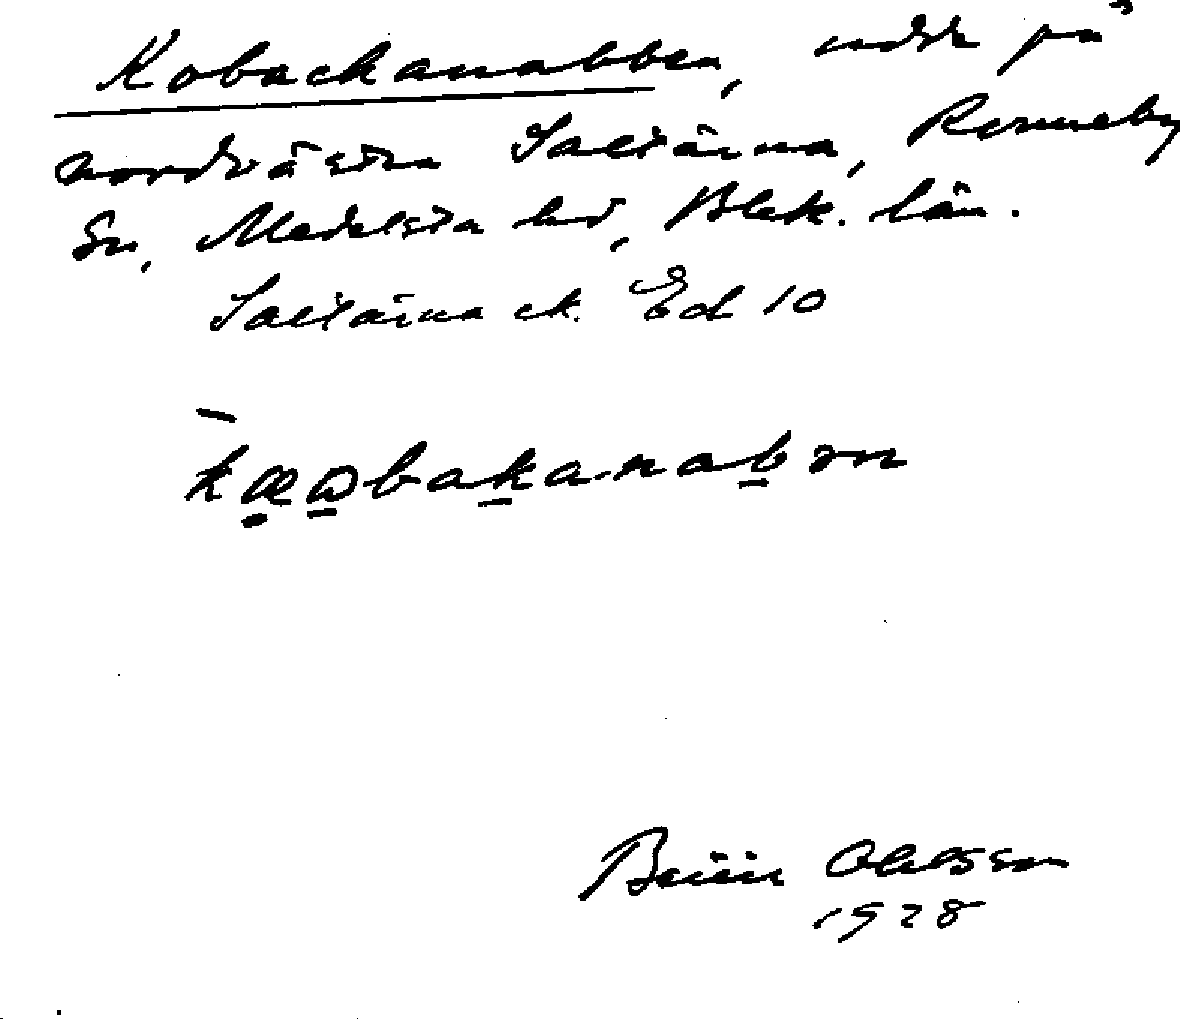 Kobackanabben, udde på
nordvästra Saltärna, Ronneby
sn, Medelsta hd, Blek. län.
Saltärna ek. Bd 10
kæωbakanabən
Ohlsson
1928